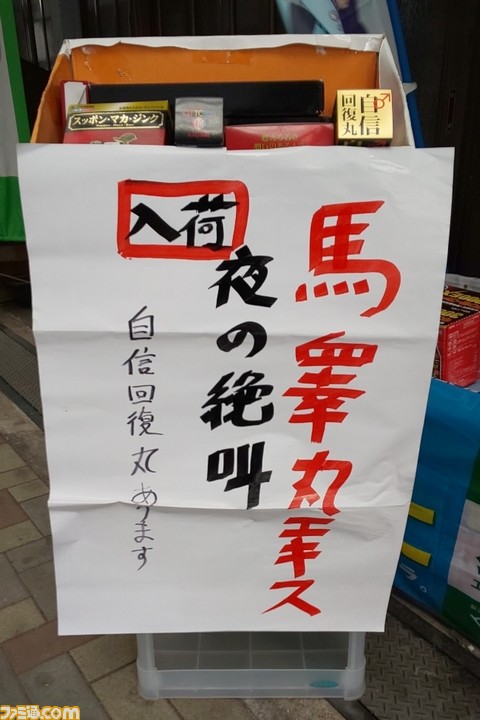 スッポン・マカ・ジンク
自信
回復丸
馬睾丸エキス
夜の絶叫
入荷
自信回復丸あります
ファミ通.com